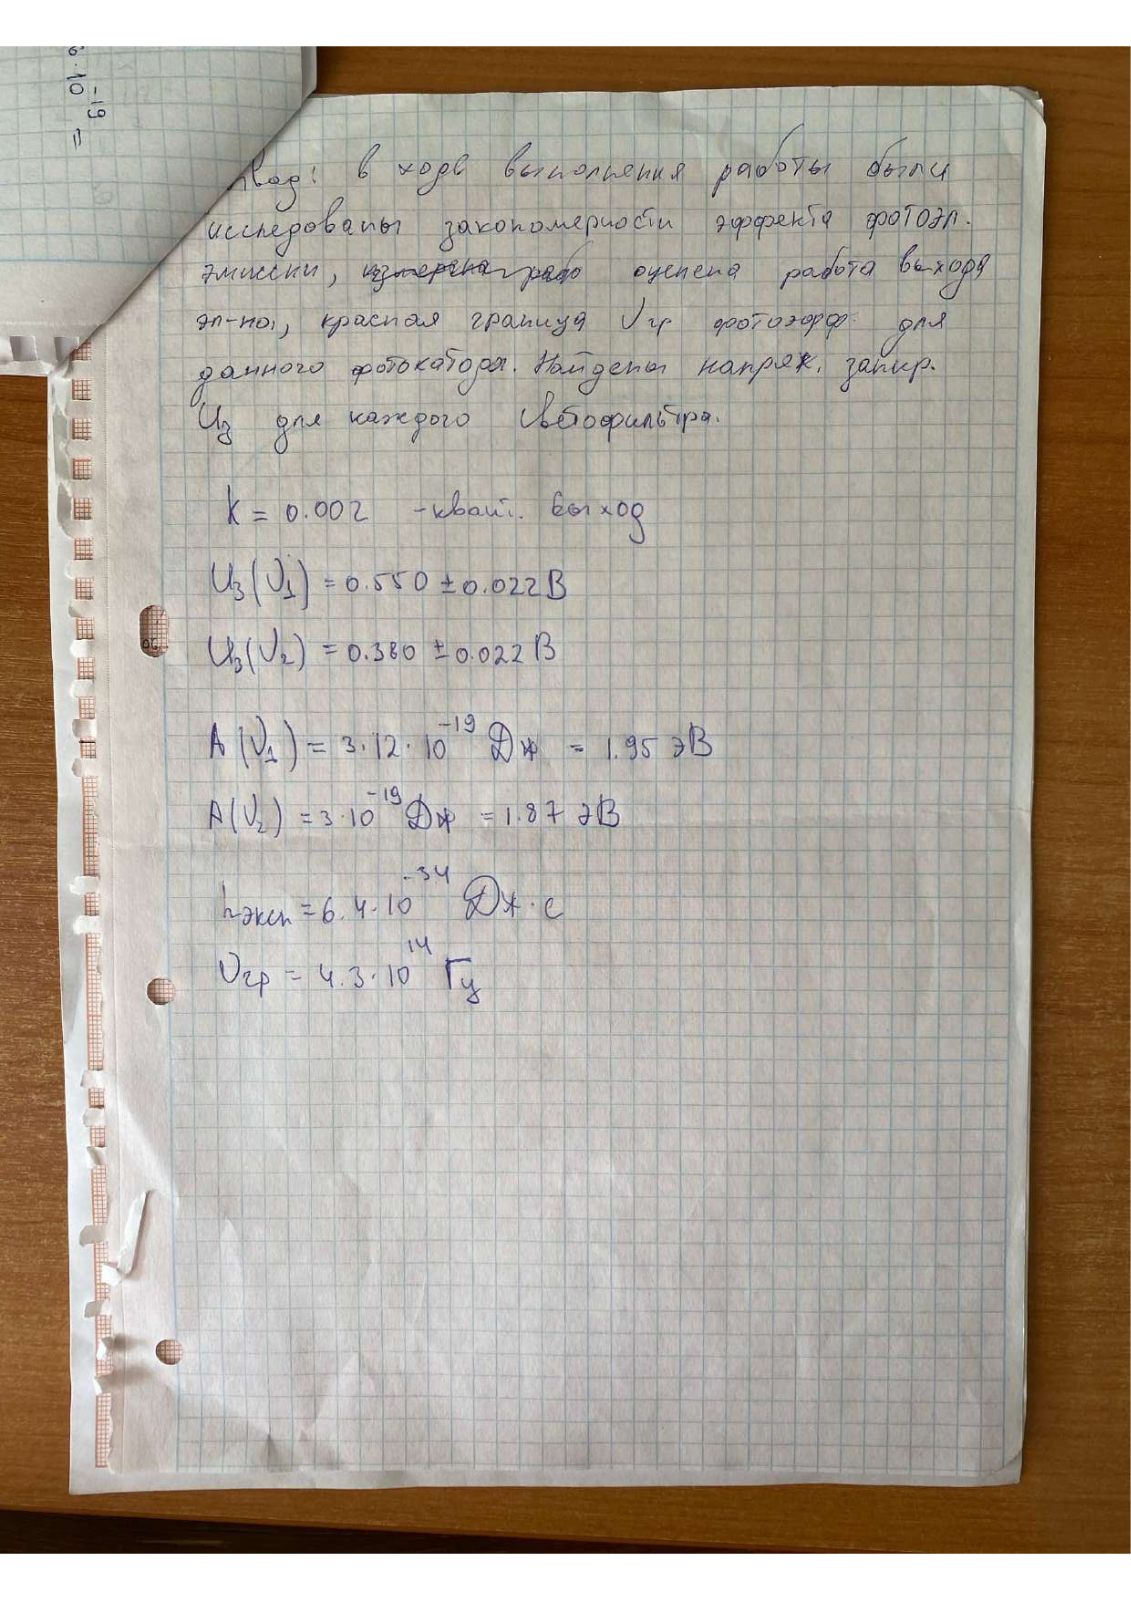 = 10
-19
вод: в ходе выполнения работы были
исследованы закономерности эффекта фотоэл.
эмиссии, оценена работа выхода
эл-на, красная граница νгр фотоэфф. для
данного фотокатода. Найдены напряж. запир.
Uз для каждого светофильтра.
K = 0.002 - квант. выход
Uз(ν1) = 0.550 ± 0.022 В
Uз(ν2) = 0.380 ± 0.022 В
A(ν1) = 3.12·10^-19 Дж = 1.95 эВ
A(ν2) = 3·10^-19 Дж = 1.87 эВ
hэксп = 6.4·10^-34 Дж·с
νгр = 4.3·10^14 Гц